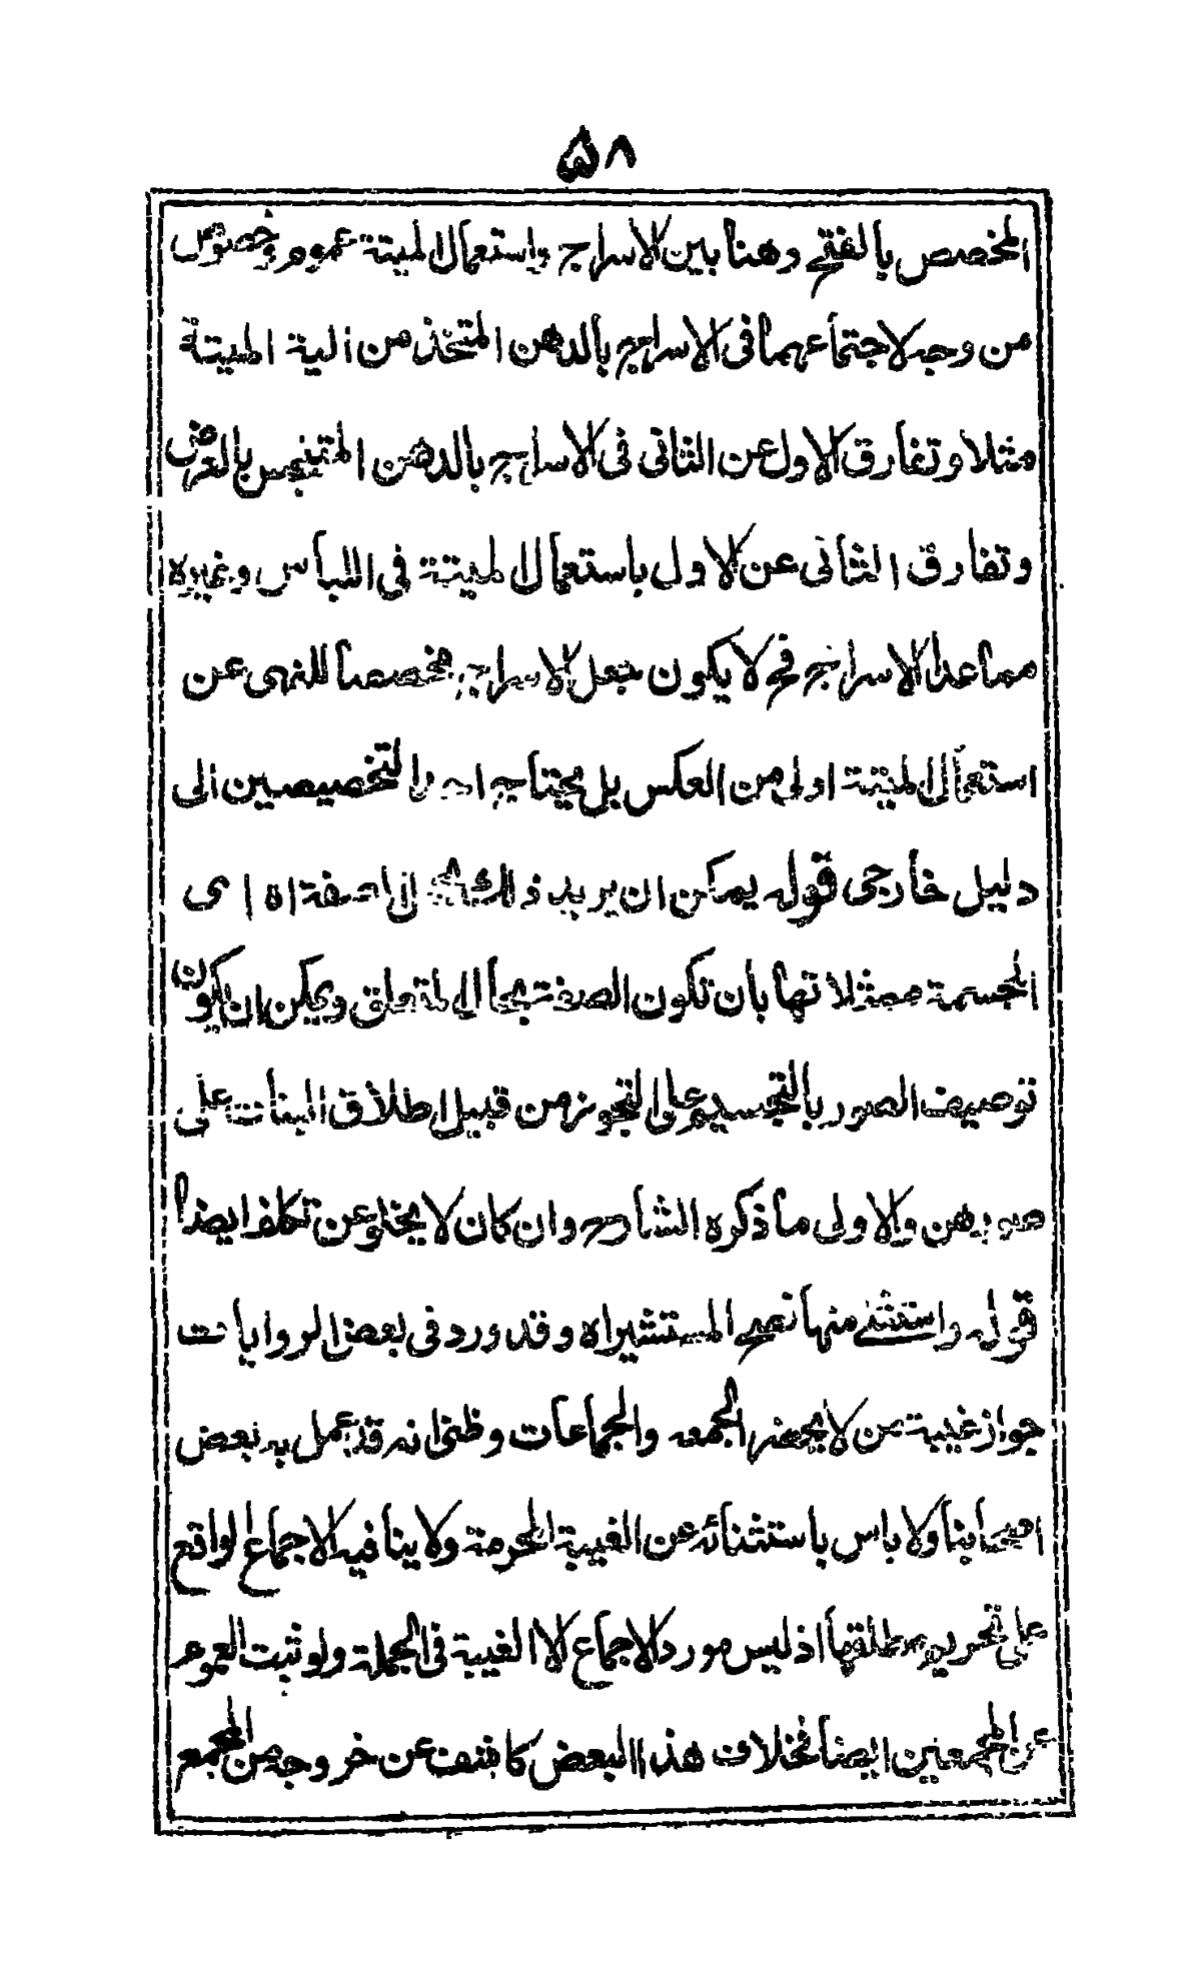 ۵۸
المخصص بالفتح وهنا بين الاسراج واستعمال الميتة عموم وخصوص
من وجه لاجتماعهما فى الاسراج بالدهن المتخذ من الية الميتة
مثلا وتفارق الاول عن الثانى فى الاسراج بالدهن المتنجس بالعرض
وتفارق الثانى عن الاول باستعمال الميتة فى اللباس وغيره
مما عدا الاسراج فح لا يكون جعل الاسراج مخصصا للنهى عن
استعمال الميتة اولى من العكس بل يحتاج احد التخصيصين الى
دليل خارجى قوله يمكن ان يريد ذلك الصفة اه اى
المجسمة ممثلاتها بان تكون الصفة بحال المتعلق ويمكن ان يكون
توصيف الصور بالتجسيم على التجوز من قبيل اطلاق البنات على
صورهن والاولى ما ذكره الشارح وان كان لا يخلو عن تكلف ايضا
قوله واستثنى منها نصح المستشير اه وقد ورد فى بعض الروايات
جواز غيبة من لا يحضر الجمعه والجماعات وظنى انه قد عمل به بعض
اصحابنا ولا باس باستثنائه عن الغيبة المحرمة ولا ينافيه الاجماع الواقع
على تحريم مطلقها اذ ليس مورد الاجماع الا الغيبة فى الجملة ولو ثبت العموم
عن المجمعين ايضا فخلاف هذا البعض كاشف عن خروجه من المجمع